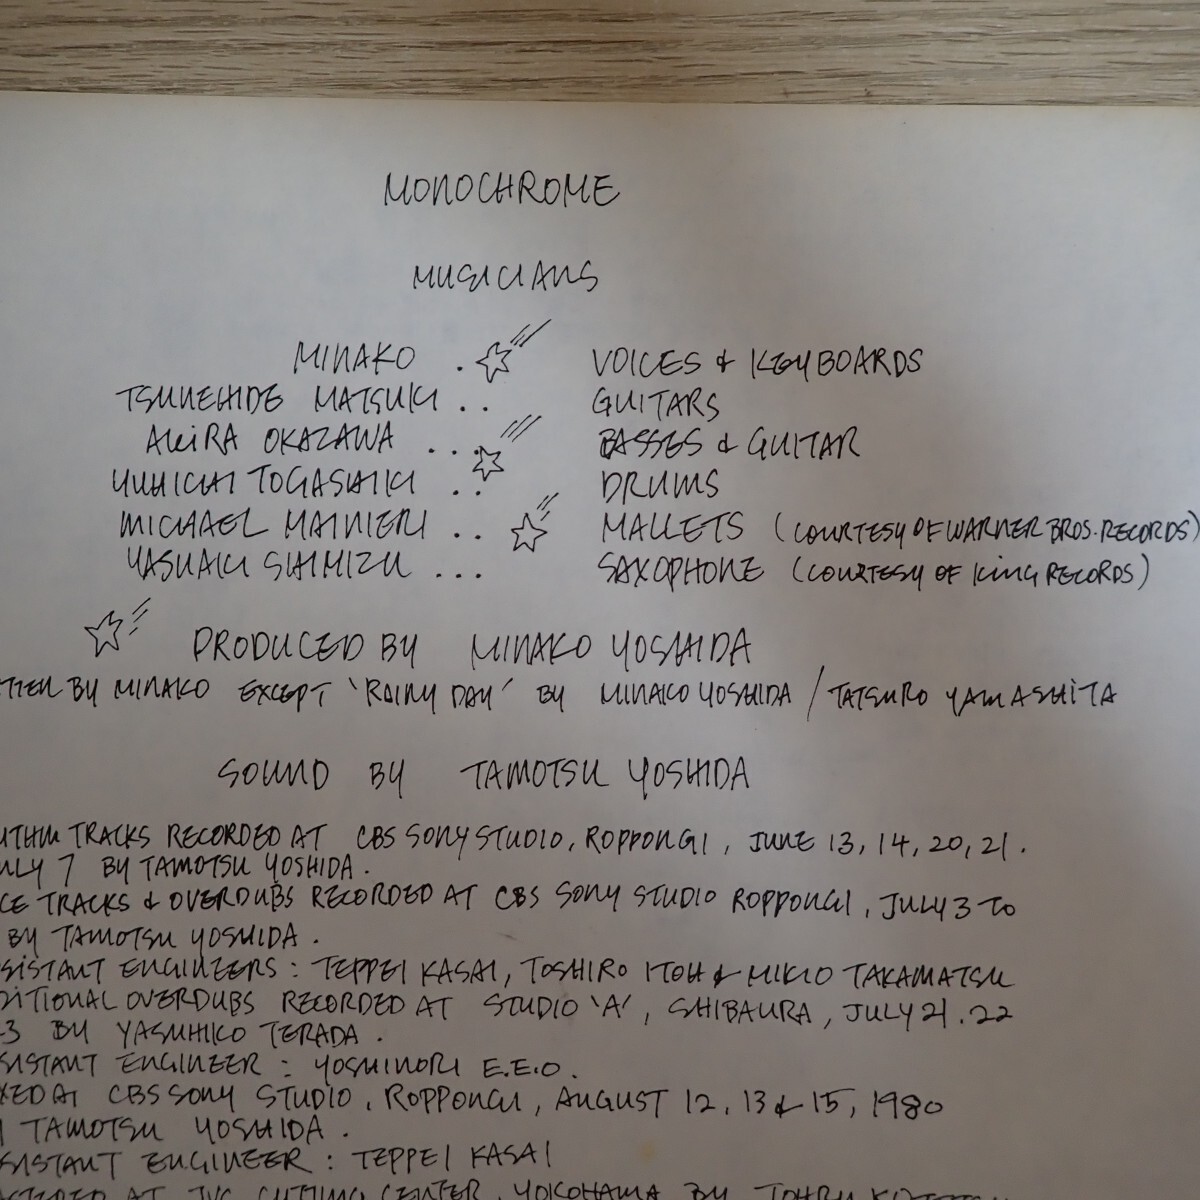 MONOCHROME
MUSICIANS
MINAKO . VOICES & KEYBOARDS
TSUNEHIDE MATSUKI .. GUITARS
AKIRA OKAZAWA ... BASSES & GUITAR
YUHICHI TOGASHIKI .. DRUMS
MICHAEL MAINIERI .. MALLETS (COURTESY OF WARNER BROS. RECORDS)
YASUAKI SHIMIZU ... SAXOPHONE (COURTESY OF KING RECORDS)
PRODUCED BY MINAKO YOSHIDA
TTEN BY MINAKO EXCEPT 'RAINY DAY' BY MINAKO YOSHIDA / TATSURO YAMASHITA
SOUND BY TAMOTSU YOSHIDA
YTHM TRACKS RECORDED AT CBS SONY STUDIO, ROPPONGI, JUNE 13, 14, 20, 21.
ULY 7 BY TAMOTSU YOSHIDA.
CE TRACKS & OVERDUBS RECORDED AT CBS SONY STUDIO ROPPONGI, JULY 3 TO
BY TAMOTSU YOSHIDA.
SISTANT ENGINEERS: TEPPEI KASAI, TOSHIRO ITOH & MIKIO TAKAMATSU
DITIONAL OVERDUBS RECORDED AT STUDIO 'A', SHIBAURA, JULY 21. 22
3 BY YASUHIKO TERADA.
SISTANT ENGINEER: YOSHINORI E.E.O.
XED AT CBS SONY STUDIO, ROPPONGI, AUGUST 12, 13 & 15, 1980
TAMOTSU YOSHIDA.
SISTANT ENGINEER: TEPPEI KASAI
AT JVC CUTTING CENTER, YOKOHAMA BY TOHRU